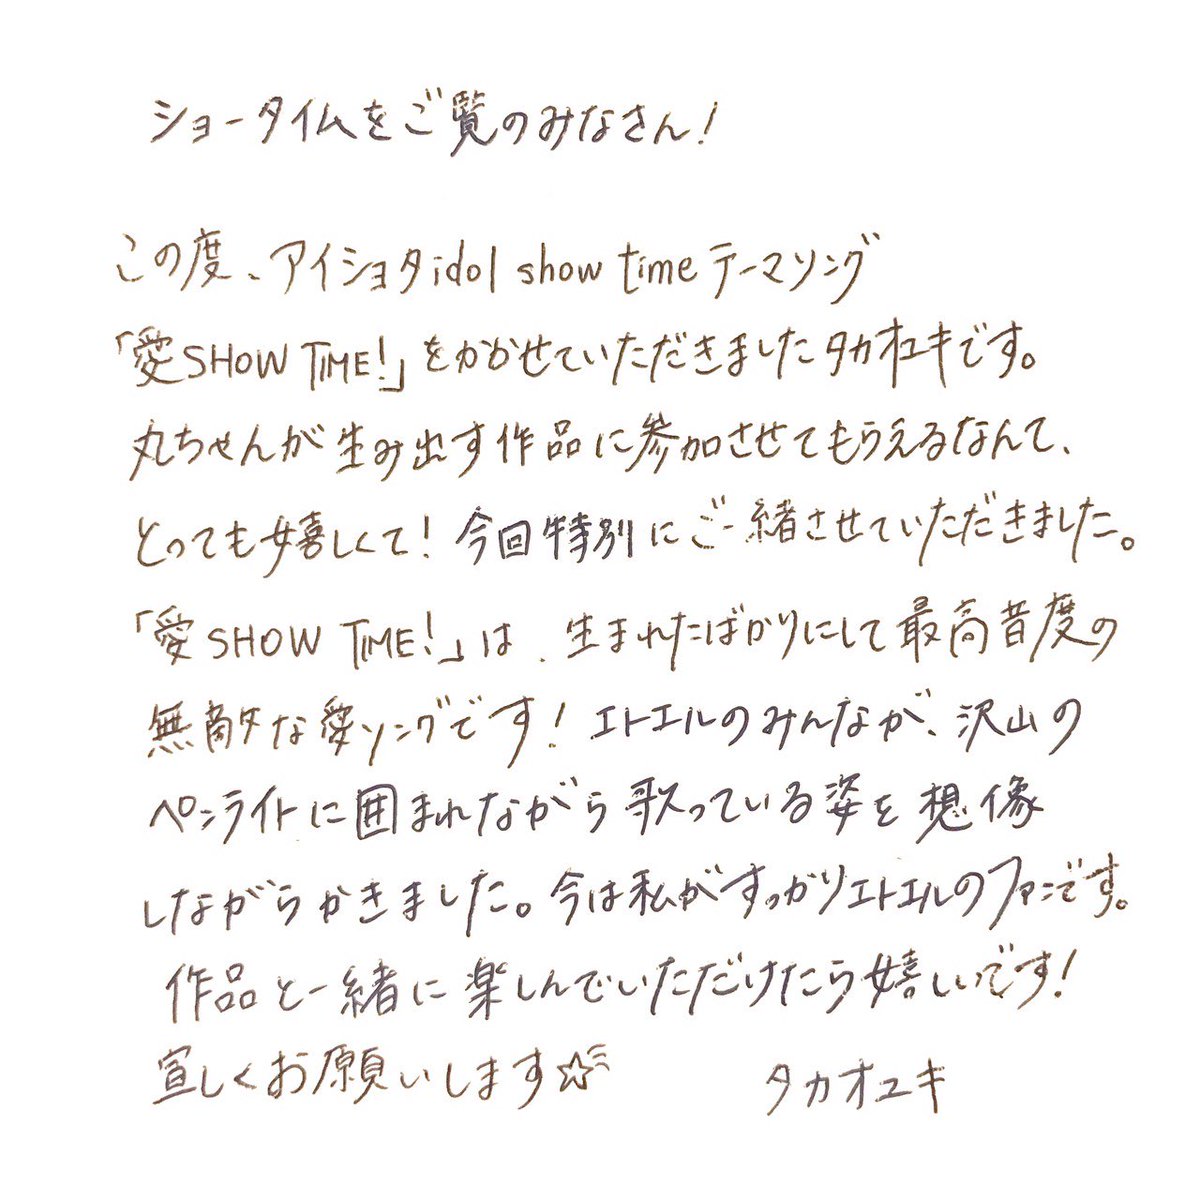 ショータイムをご覧のみなさん！
この度、アイショタidol show timeテーマソング
「愛SHOW TIME!」をかかせていただきましたタカオユキです。
丸ちゃんが生み出す作品に参加させてもらえるなんて、
とっても嬉しくて！今回特別にご一緒させていただきました。
「愛SHOW TIME!」は、生まれたばかりにして最高音度の
無敵な愛ソングです！エトエルのみんなが、沢山の
ペンライトに囲まれながら歌っている姿を想像
しながらかきました。今は私がすっかりエトエルのファンです。
作品と一緒に楽しんでいただけたら嬉しいです！
宜しくお願いします☆
タカオユキ